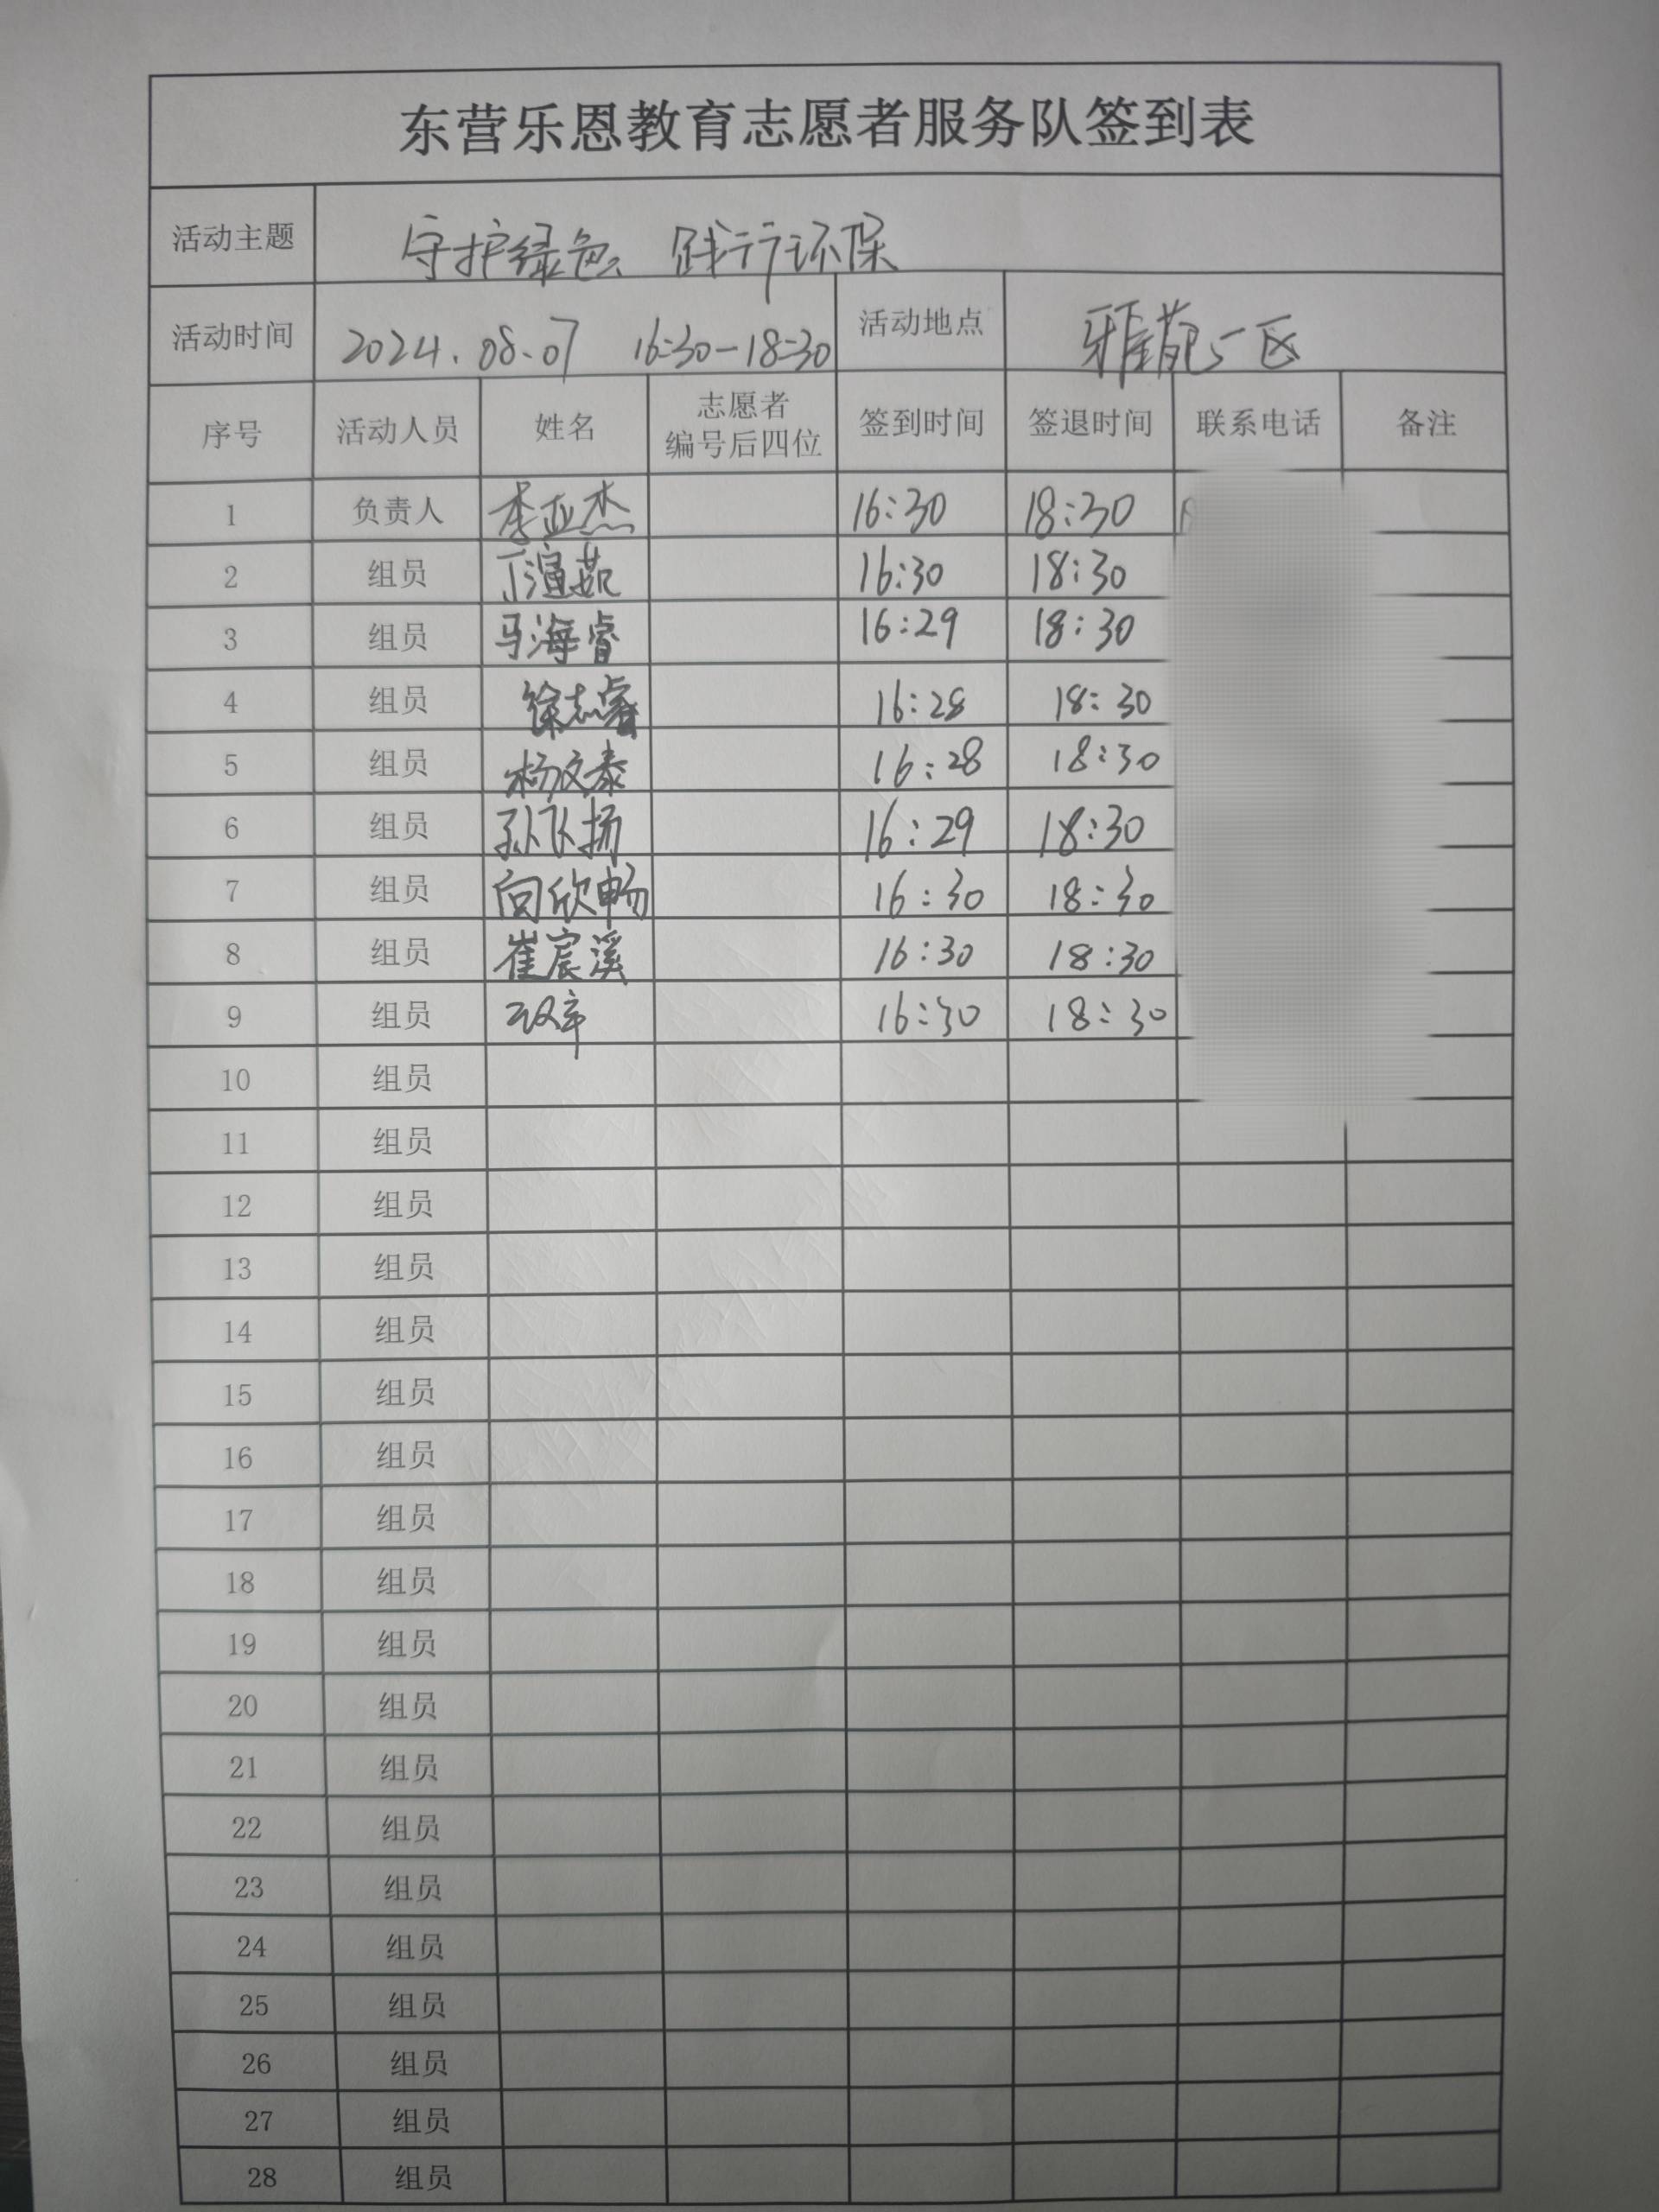 东营乐恩教育志愿者服务队签到表
活动主题 守护绿色 践行环保
活动时间 2024.08.07 16:30-18:30 活动地点 雅苑 区
序号 活动人员 姓名 志愿者编号后四位 签到时间 签退时间 联系电话 备注
1 负责人 李亚杰 16:30 18:30
2 组员 丁 茹 16:30 18:30
3 组员 马海睿 16:29 18:30
4 组员 徐志睿 16:28 18:30
5 组员 杨文泰 16:28 18:30
6 组员 孙飞扬 16:29 18:30
7 组员 向欣畅 16:30 18:30
8 组员 崔宸溪 16:30 18:30
9 组员 16:30 18:30
10 组员
11 组员
12 组员
13 组员
14 组员
15 组员
16 组员
17 组员
18 组员
19 组员
20 组员
21 组员
22 组员
23 组员
24 组员
25 组员
26 组员
27 组员
28 组员